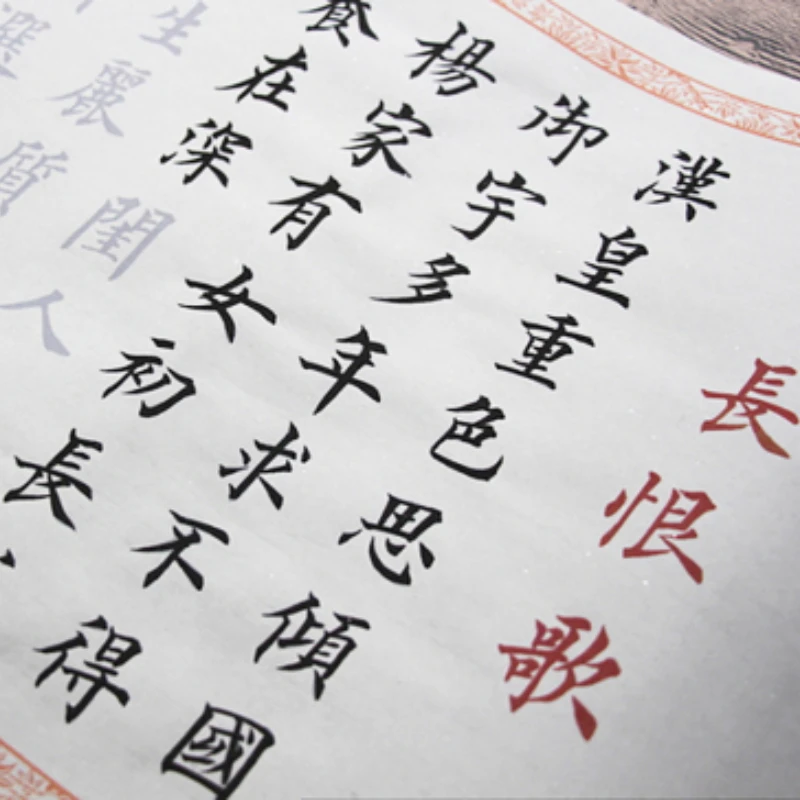 長恨歌
漢皇重色思傾國
御宇多年求不得
楊家有女初長
養在深閨人
生麗質
選